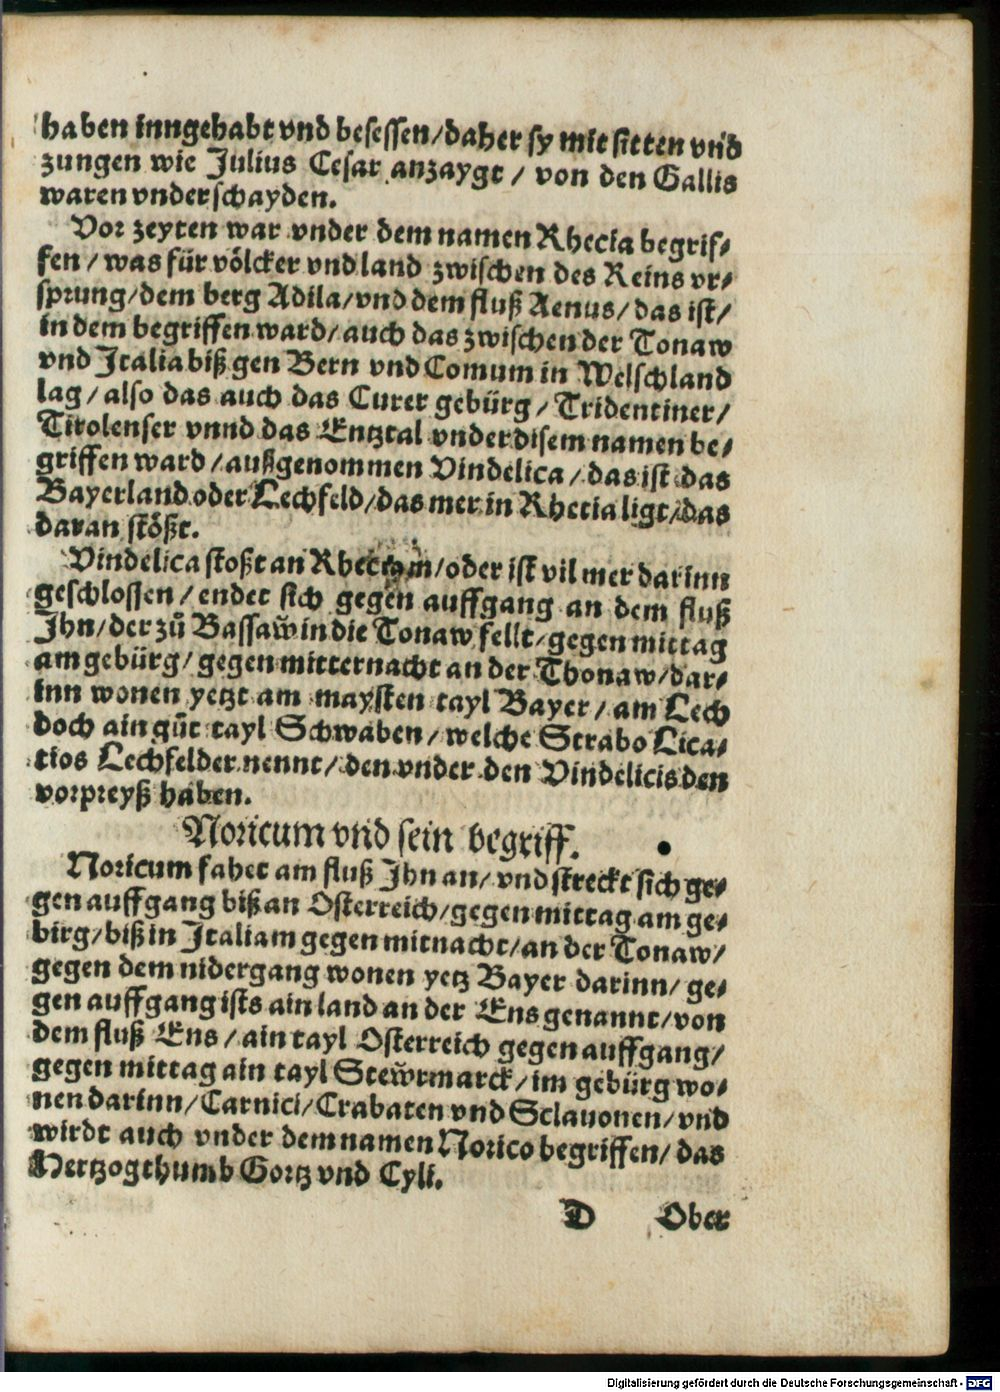 haben inngehabt vnd besessen/daher sy mit sitten vnd
zungen wie Julius Cesar anzaygt / von den Gallis
waren vnderschayden.
Vor zeyten war vnder dem namen Rhecia begrif⸗
fen / was für völcker vnd land zwischen des Reins vr⸗
sprung/dem berg Adila/vnd dem fluß Aenus/das ist/
in dem begriffen ward/auch das zwischen der Tonaw
vnd Italia biß gen Bern vnd Comum in Welschland
lag / also das auch das Curer gebürg / Tridentiner/
Tirolenser vnnd das Entztal vnder disem namen be⸗
griffen ward / außgenommen Vindelica / das ist das
Bayerland oder Lechfeld/das mer in Rhetia ligt/das
daran stößt.
Vindelica stoßt an /oder ist vil mer darinn
geschlossen / endet sich gegen auffgang an dem fluß
Ihn/der zů Bassaw in die Tonaw fellt/gegen mittag
am gebürg/ gegen mitternacht an der Thonaw/dar⸗
inn wonen yetzt am maysten tayl Bayer / am Lech
doch ain gůt tayl Schwaben/welche Strabo Lica⸗
tios Lechfelder nennt/den vnder den Vindelicis den
vorpreyß haben.
Noricum vnd sein begriff.
Noricum fahet am fluß Ihn an/vnd streckt sich ge⸗
gen auffgang biß an Osterreich/gegen mittag am ge⸗
birg/biß in Italiam gegen mitnacht/an der Tonaw/
gegen dem nidergang wonen yetz Bayer darinn/ ge⸗
gen auffgang ists ain land an der Ens genannt/von
dem fluß Ens / ain tayl Osterreich gegen auffgang/
gegen mittag ain tayl Stewrmarck/im gebürg wo⸗
nen darinn/Carnici/Crabaten vnd Sclauonen/vnd
wirdt auch vnder dem namen Norico begriffen/das
Hertzogthumb Gortz vnd Cyli.
D Ober
Digitalisierung gefördert durch die Deutsche Forschungsgemeinschaft - DFG